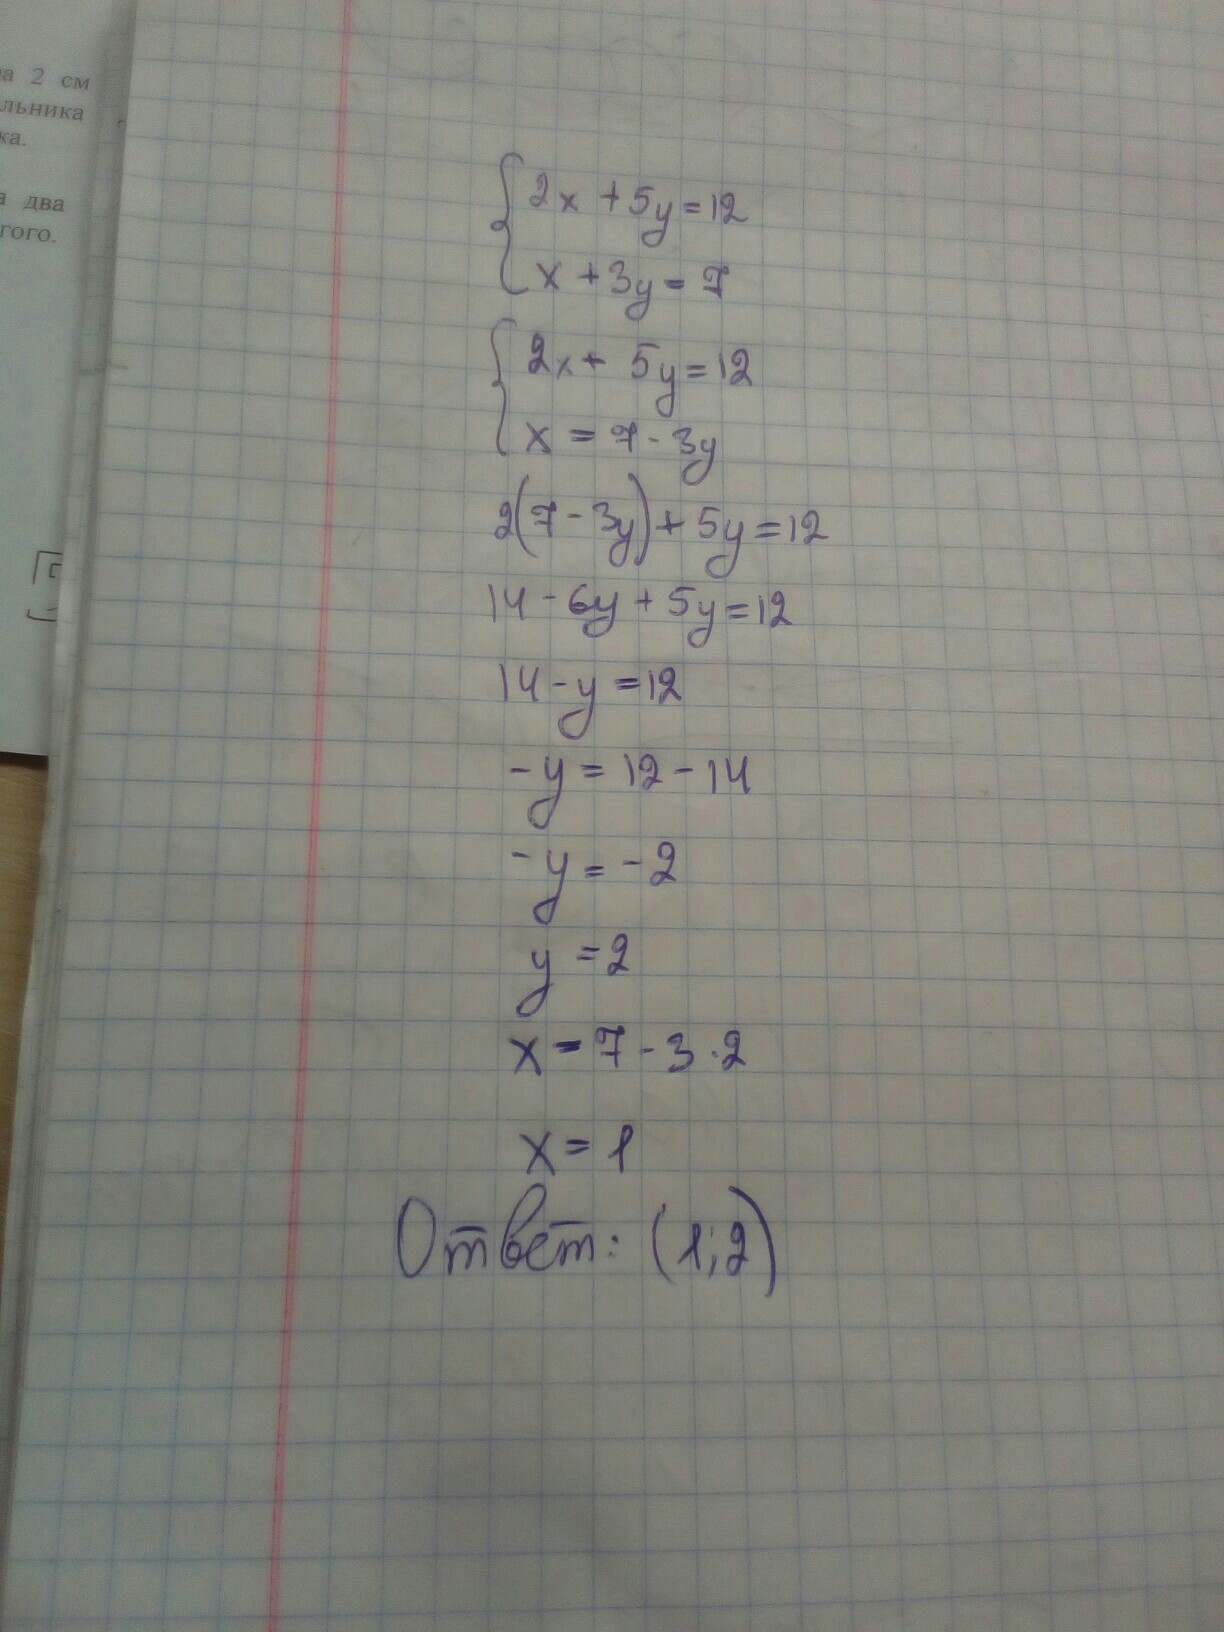 а 2 см
льника
ка.
а два
гого.
2x + 5y = 12
x + 3y = 7
2x + 5y = 12
x = 7 - 3y
2(7 - 3y) + 5y = 12
14 - 6y + 5y = 12
14 - y = 12
- y = 12 - 14
- y = - 2
y = 2
x = 7 - 3 · 2
x = 1
Ответ: (1; 2)